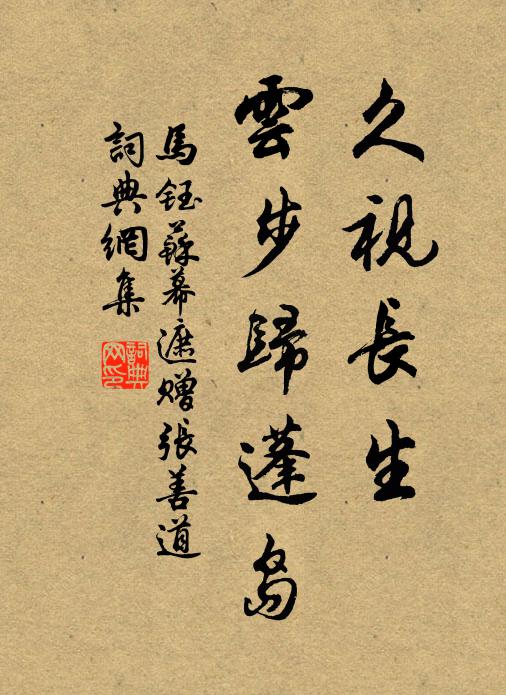 久視長生
雲步歸蓬島
馬鈺蘇幕遮贈張善道
詞典網集
詞典網印